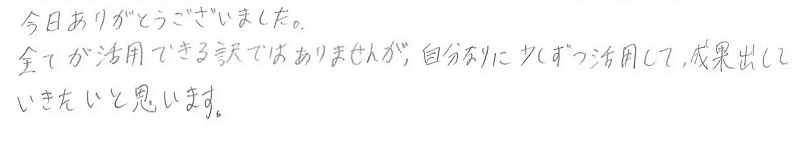 今日ありがとうございました。
全てが活用できる訳ではありませんが、自分なりに少しずつ活用して、成果出して
いきたいと思います。